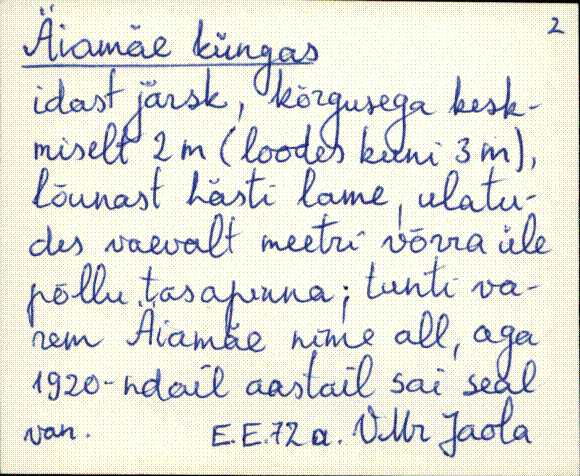 2
Äiamäe küngas
idast järsk, kõrgusega kesk-
miselt 2 m (loodes kuni 3 m),
lõunast hästi lame, ulatu-
des vaevalt meetri võrra üle
põllu tasapinna; tunti va-
rem Äiamäe nime all, aga
1920-ndail aastail sai seal
van. E.E.72 a. VMr Jaola